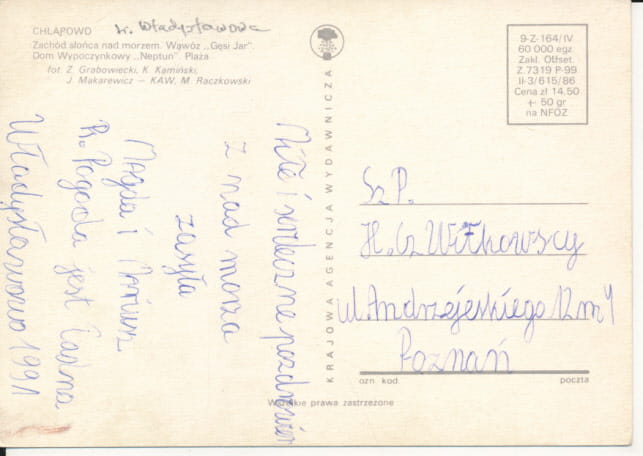 CHŁAPOWO k. Władysławowa
Zachód słońca nad morzem. Wąwóz „Gęsi Jar".
Dom Wypoczynkowy „Neptun". Plaża
fot: Z. Grabowiecki, K. Kamiński,
J. Makarewicz — KAW, M. Raczkowski
Miłe i serdeczne pozdrowień
z nad morza
zasyła
Magda i Mariusz
P.S. Pogoda jest ładna
Władysławowo 1991
KRAJOWA AGENCJA WYDAWNICZA
9-Z-164/IV
60 000 egz.
Zakł. Offset.
Z. 7319 P-99
II-3/615/86
Cena zł 14.50
+ 50 gr
na NFOZ
Sz. P.
H. Cz Witkowscy
ul. Andrzejeskiego 12 m 4
Poznań
ozn. kod. poczta
Wszelkie prawa zastrzeżone